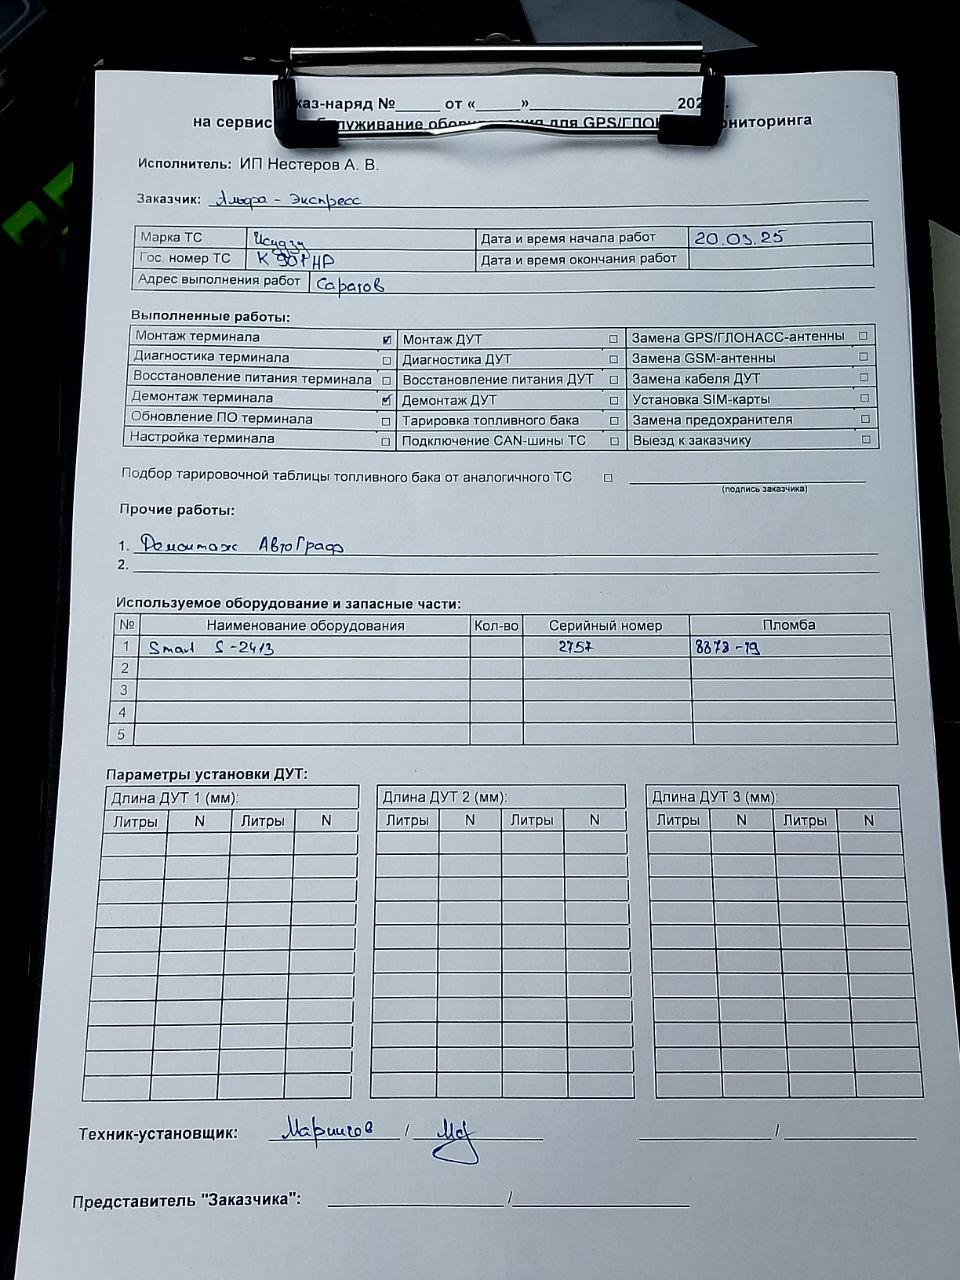 каз-наряд №______ от «_____»__________________ 202
на сервис луживание обор ия для GPS/ГЛОН ониторинга
Исполнитель: ИП Нестеров А. В.
Заказчик: Альфа - Экспресс
Марка ТС Исудзу Дата и время начала работ 20.03.25
Гос. номер ТС К 901 НР Дата и время окончания работ
Адрес выполнения работ Саратов
Выполненные работы:
Монтаж терминала ☑ Монтаж ДУТ ☐ Замена GPS/ГЛОНАСС-антенны ☐
Диагностика терминала ☐ Диагностика ДУТ ☐ Замена GSM-антенны ☐
Восстановление питания терминала ☐ Восстановление питания ДУТ ☐ Замена кабеля ДУТ ☐
Демонтаж терминала ☑ Демонтаж ДУТ ☐ Установка SIM-карты ☐
Обновление ПО терминала ☐ Тарировка топливного бака ☐ Замена предохранителя ☐
Настройка терминала ☐ Подключение CAN-шины ТС ☐ Выезд к заказчику ☐
Подбор тарировочной таблицы топливного бака от аналогичного ТС ☐
(подпись заказчика)
Прочие работы:
1. Демонтаж АвтоГраф
2.
Используемое оборудование и запасные части:
№ Наименование оборудования Кол-во Серийный номер Пломба
1 Smart S-2413 2757 8873-19
2
3
4
5
Параметры установки ДУТ:
Длина ДУТ 1 (мм): Длина ДУТ 2 (мм): Длина ДУТ 3 (мм):
Литры N Литры N Литры N Литры N Литры N Литры N
Техник-установщик: /
Представитель "Заказчика": /